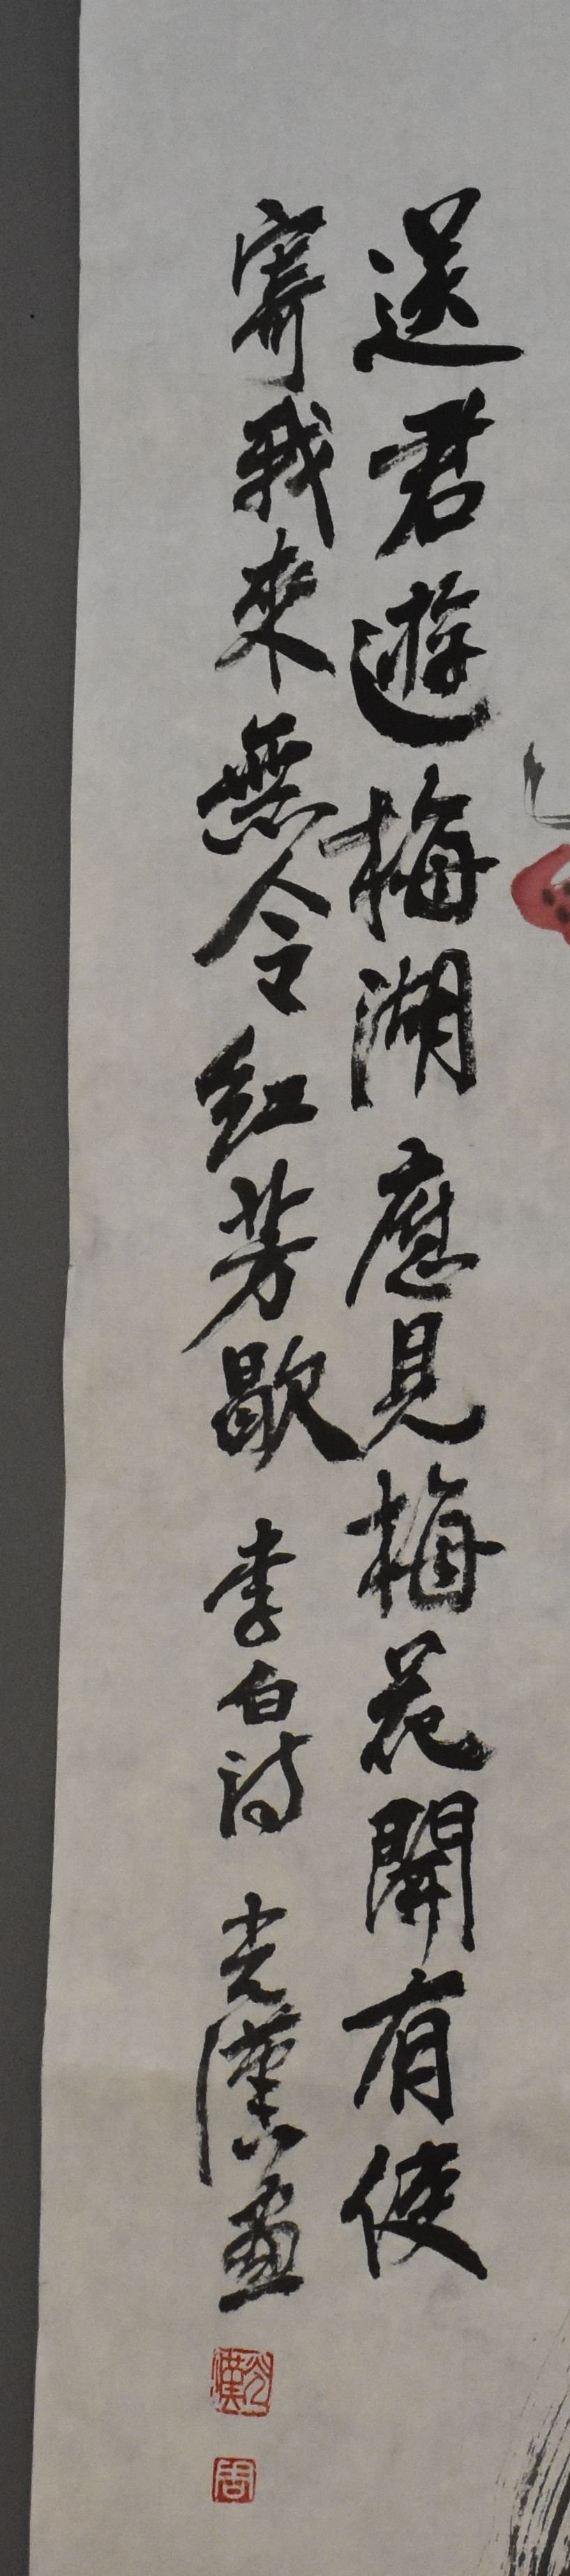 送君遊梅湖應見梅花開有使
寄我來無令紅芳歇 李白詩 光漢畫
光漢
周